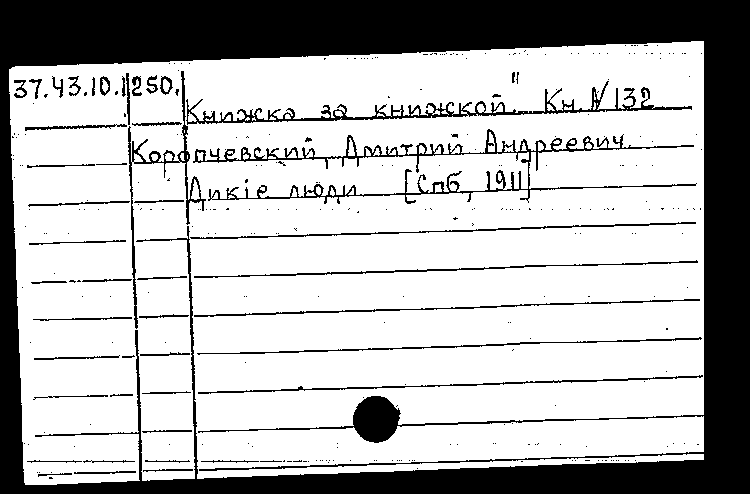 37.43.10.1250.
Книжка за книжкой." Кн. № 132
Коропчевский, Дмитрий Андреевич.
Дикіе люди [Спб, 1911]